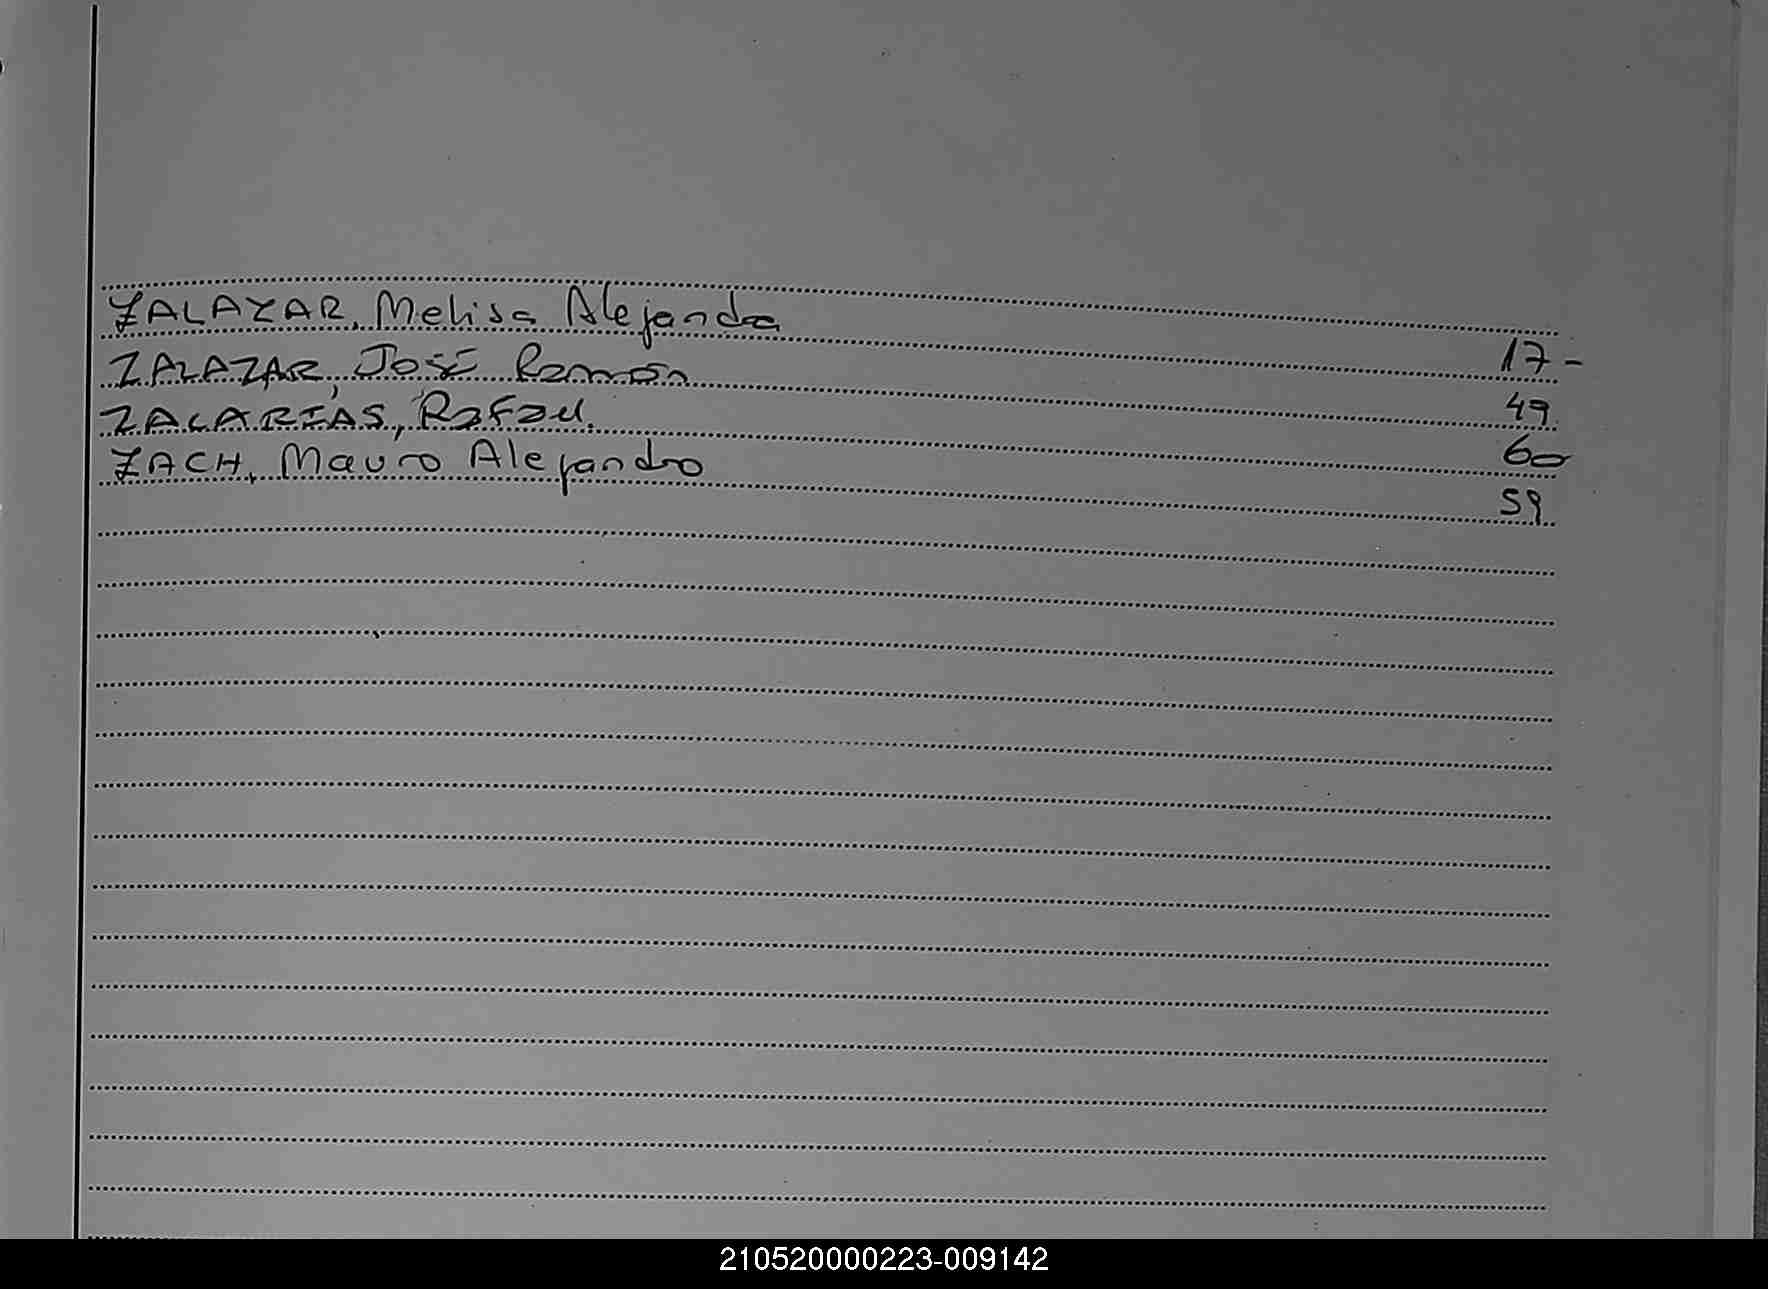 ZALAZAR, Melisa Alejandra 17-
ZALAZAR, José Ramón 49
ZACARIAS, Rafael. 60
ZACH, Mauro Alejandro 59
210520000223-009142